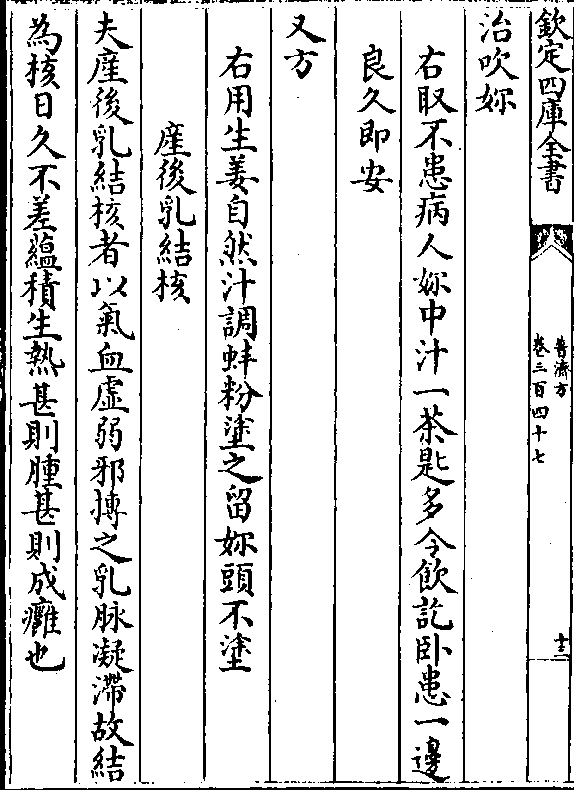 欽定四庫全書
普濟方
卷三百四十七
十三
治吹妳
右取不患病人妳中汁一茶匙多令飲訖卧患一邊
良久即安
又方
右用生姜自然汁調蚌粉塗之留妳頭不塗
產後乳結核
夫產後乳結核者以氣血虛弱邪搏之乳脉凝滯故結
為核日久不差蘊積生熱甚則腫甚則成癰也